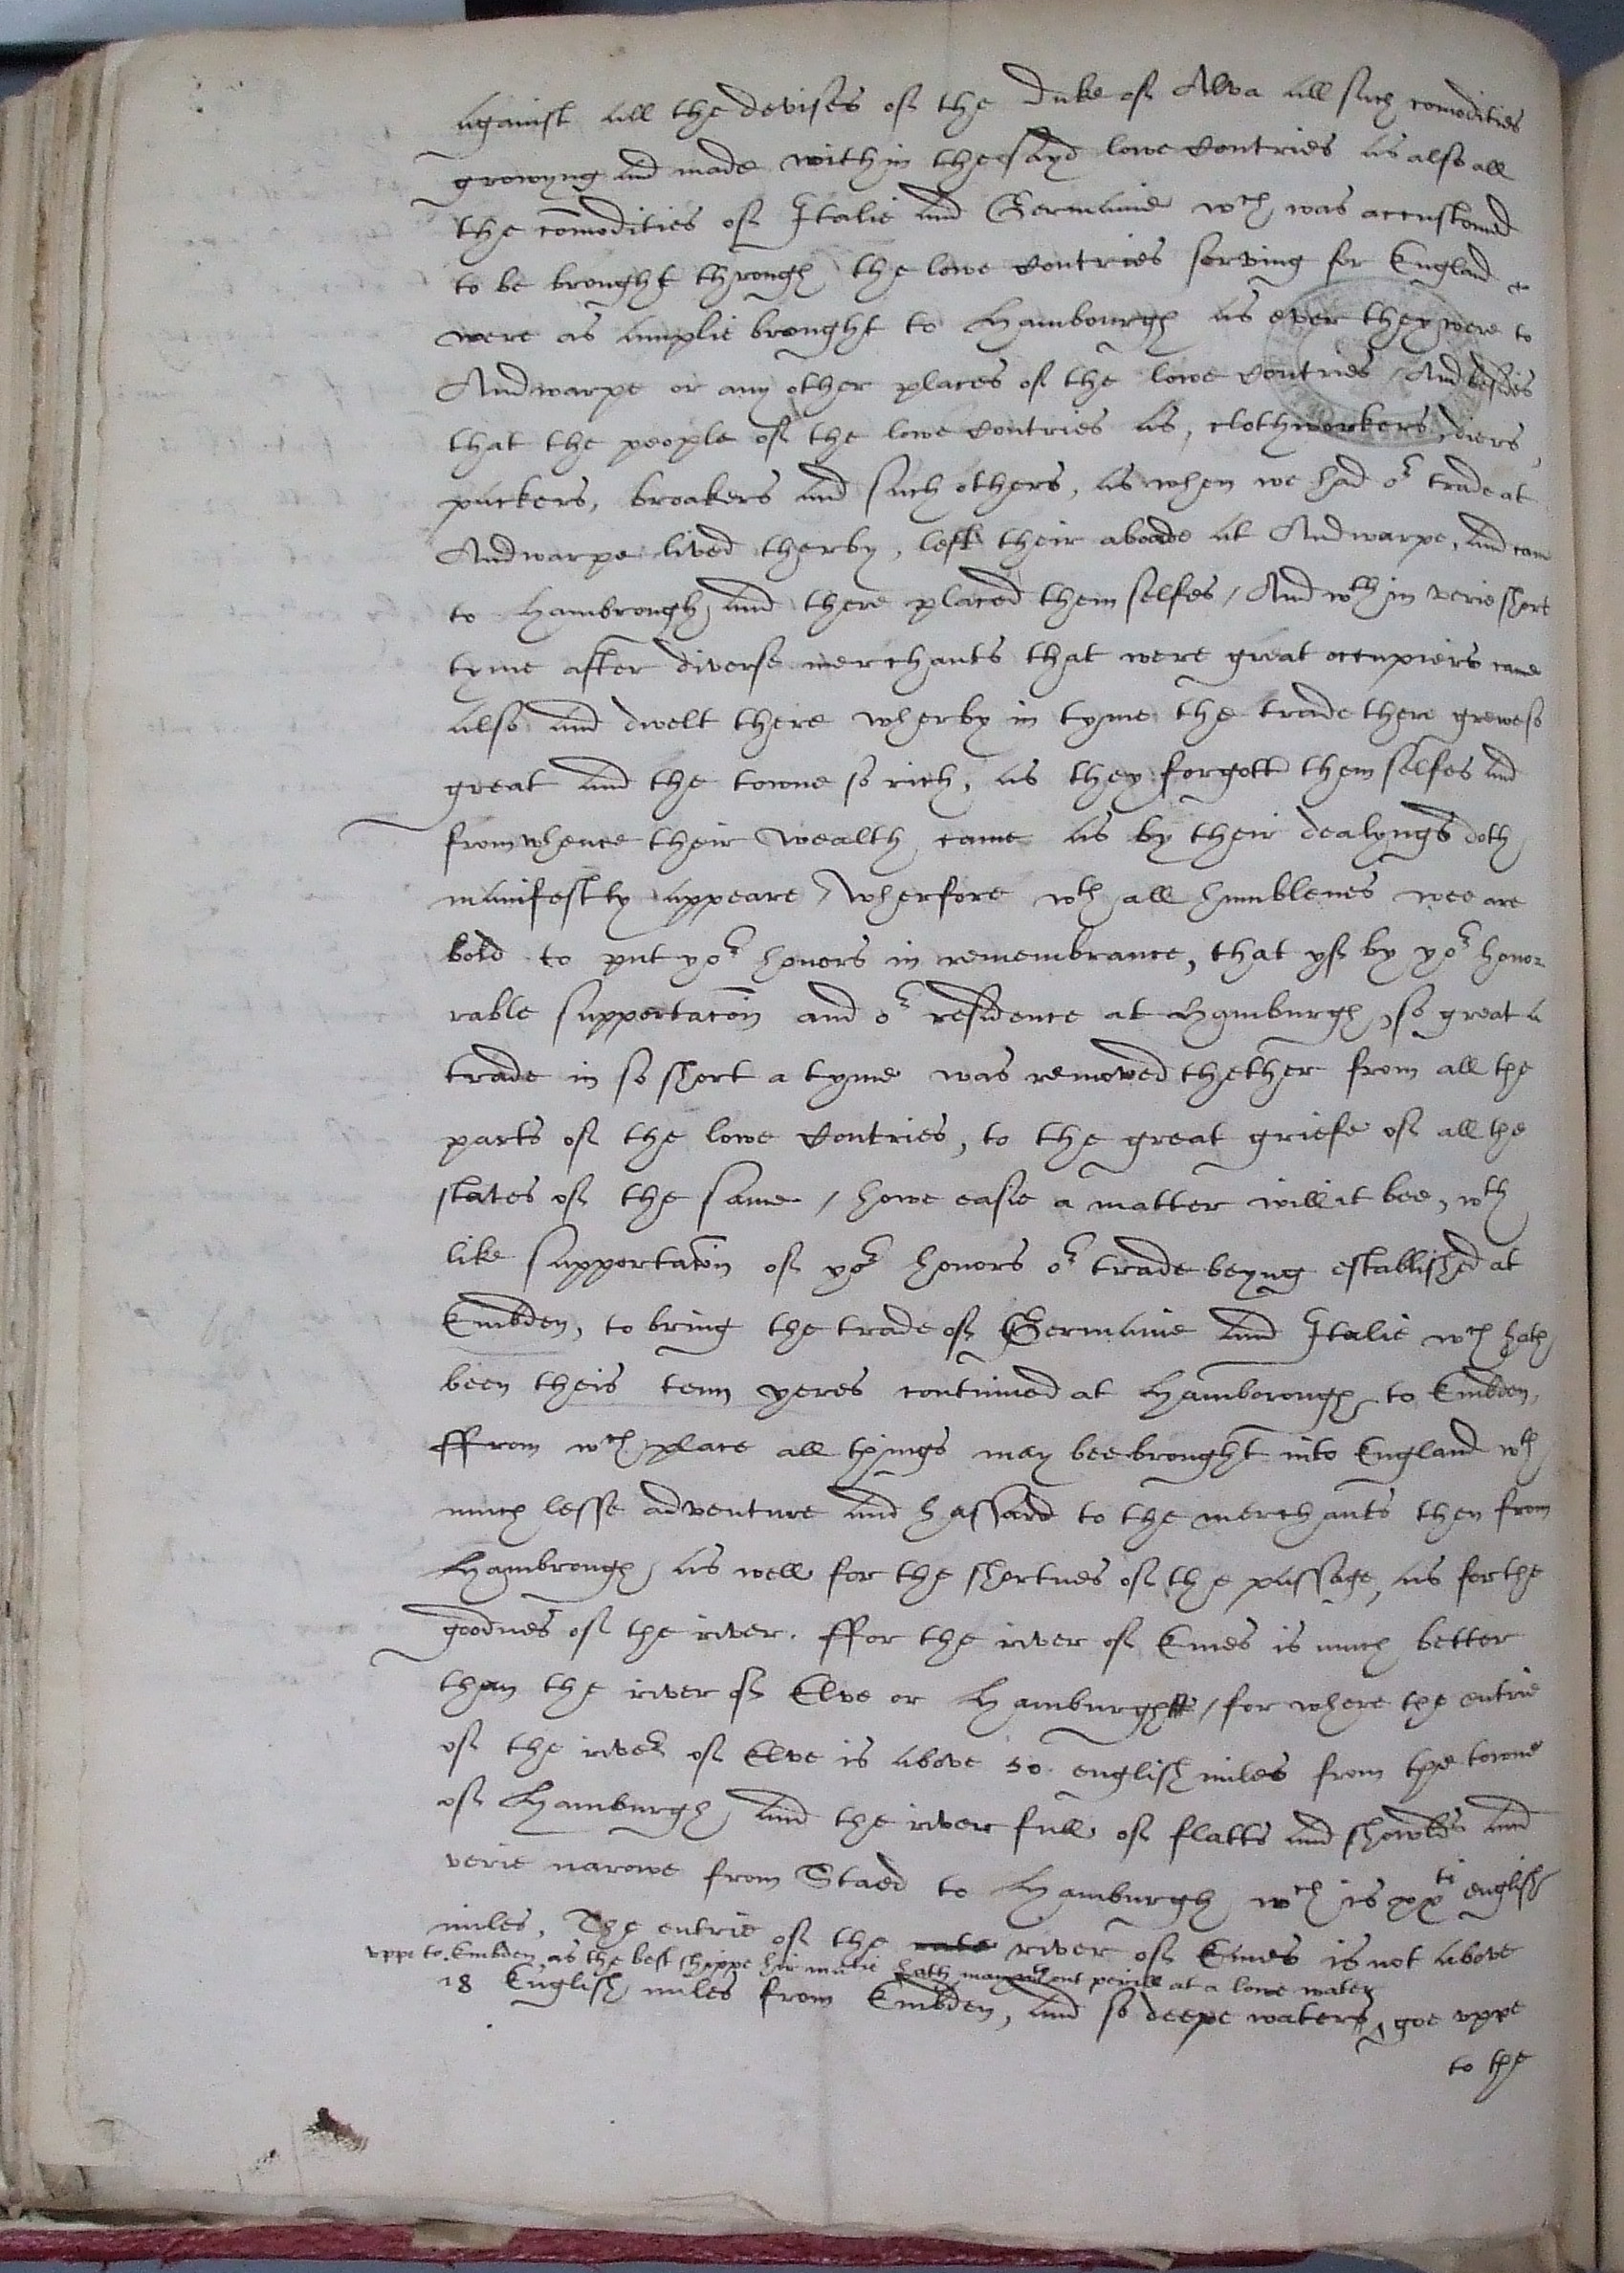 against all the devises of the Duke of Alva all such comodities
growyng and made within the sayd lowe Contries as also all
the comodities of Italie and Germanie wch was accustomed
to be brought through the lowe Contries serving for England
were as amplie brought to Hambourgh as ever they were to
Andwarpe or any other places of the lowe Contries / And besides
that the people of the lowe Contries as, clothworkers, diers,
packers, broakers and such others, as when we had or trade at
Andwarpe lived therby, left their aboade at Andwarpe, and cam
to Hambrough and there placed them selfes / And wthin verie short
tyme after diverse merchants that were great occupiers came
also and dwelt there wherby in tyme the trade there grewe so
great and the towne so rich, as they forgott them selfes and
from whence their wealth came as by their dealyngs doth
manifestly appeare / Wherfore wth all humblenes wee are
bold to put yor honors in remembrance, that yf by yor hono-
rable supportacon and or residence at Hamburgh, so great a
trade in so short a tyme was removed thether from all the
parts of the lowe Contries, to the great griefe of all the
states of the same / howe easie a matter will it bee, wth
like supportacon of yor honors or trade beyng established at
Embden, to bring the trade of Germanie and Italie wch hath
been theis tenn yeres continued at Hamborough to Embden,
ffrom wch place all thyngs may bee brought into England wth
much lesse adventure and hassard to the merchants then from
Hambrough as well for the shortnes of the passage, as for the
goodnes of the river. ffor the river of Emes is much better
than the river of Elve or Hamburgh / for where the entrie
of the river of Elve is above 50 english miles from the towne
of Hamburgh and the river full of flatts and showlds and
verie narowe from Staed to Hamburgh wch is xxti english
miles. The entrie of the river of Emes is not above
uppe to Embden as the best shippe hir matie hath may wthout perill at a lowe water
18 English miles from Embden, and so deepe waters goe uppe
to the